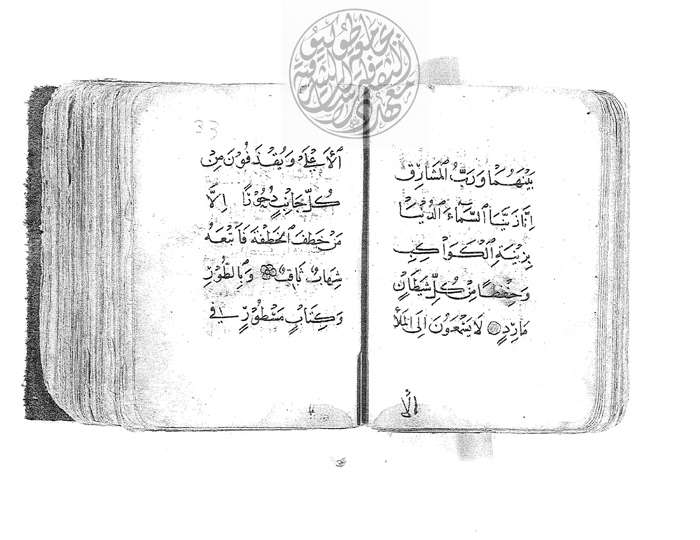 بَيْنَهُمَا وَرَبُّ الْمَشَارِقِ
اِنَّا زَيَّنَّا السَّمَاءَ الدُّنْيَا
بِزِيْنَةِ الْكَوَاكِبِ
وَحِفْظًا مِنْ كُلِّ شَيْطَانٍ
مَارِدٍ لَا يَسَّمَّعُوْنَ اِلَى الْمَلَأِ
الا
33
الْاَعْلٰى وَيُقْذَفُوْنَ مِنْ
كُلِّ جَانِبٍ دُحُوْرًا اِلَّا
مَنْ خَطِفَ الْخَطْفَةَ فَاَتْبَعَهُ
شِهَابٌ ثَاقِبٌ وَالطُّوْرِ
وَكِتَابٍ مَسْطُوْرٍ فِي